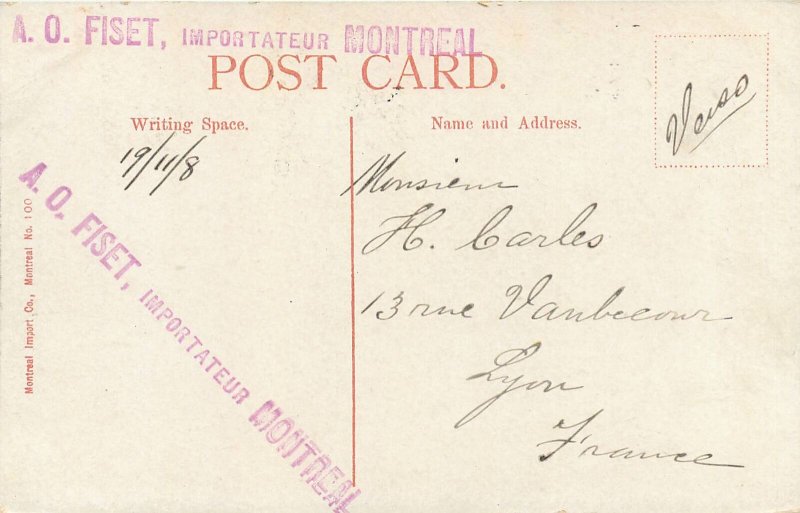 A. O. FISET, IMPORTATEUR MONTREAL
POST CARD.
Writing Space.
Name and Address.
Verso
19/11/8
Monsieur
H. Carles
13 rue Vaubecour
Lyon
France
A. O. FISET, IMPORTATEUR MONTREAL
Montreal Import Co., Montreal No. 100